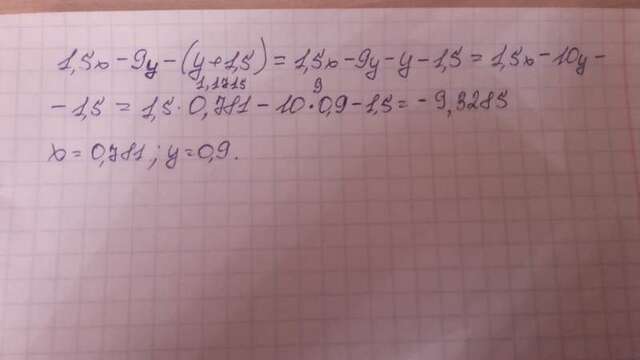 1,5x - 9y - (y + 1,5) = 1,5x - 9y - y - 1,5 = 1,5x - 10y -
1,1715 9
- 1,5 = 1,5 · 0,781 - 10 · 0,9 - 1,5 = - 9,3285
x = 0,781; y = 0,9.